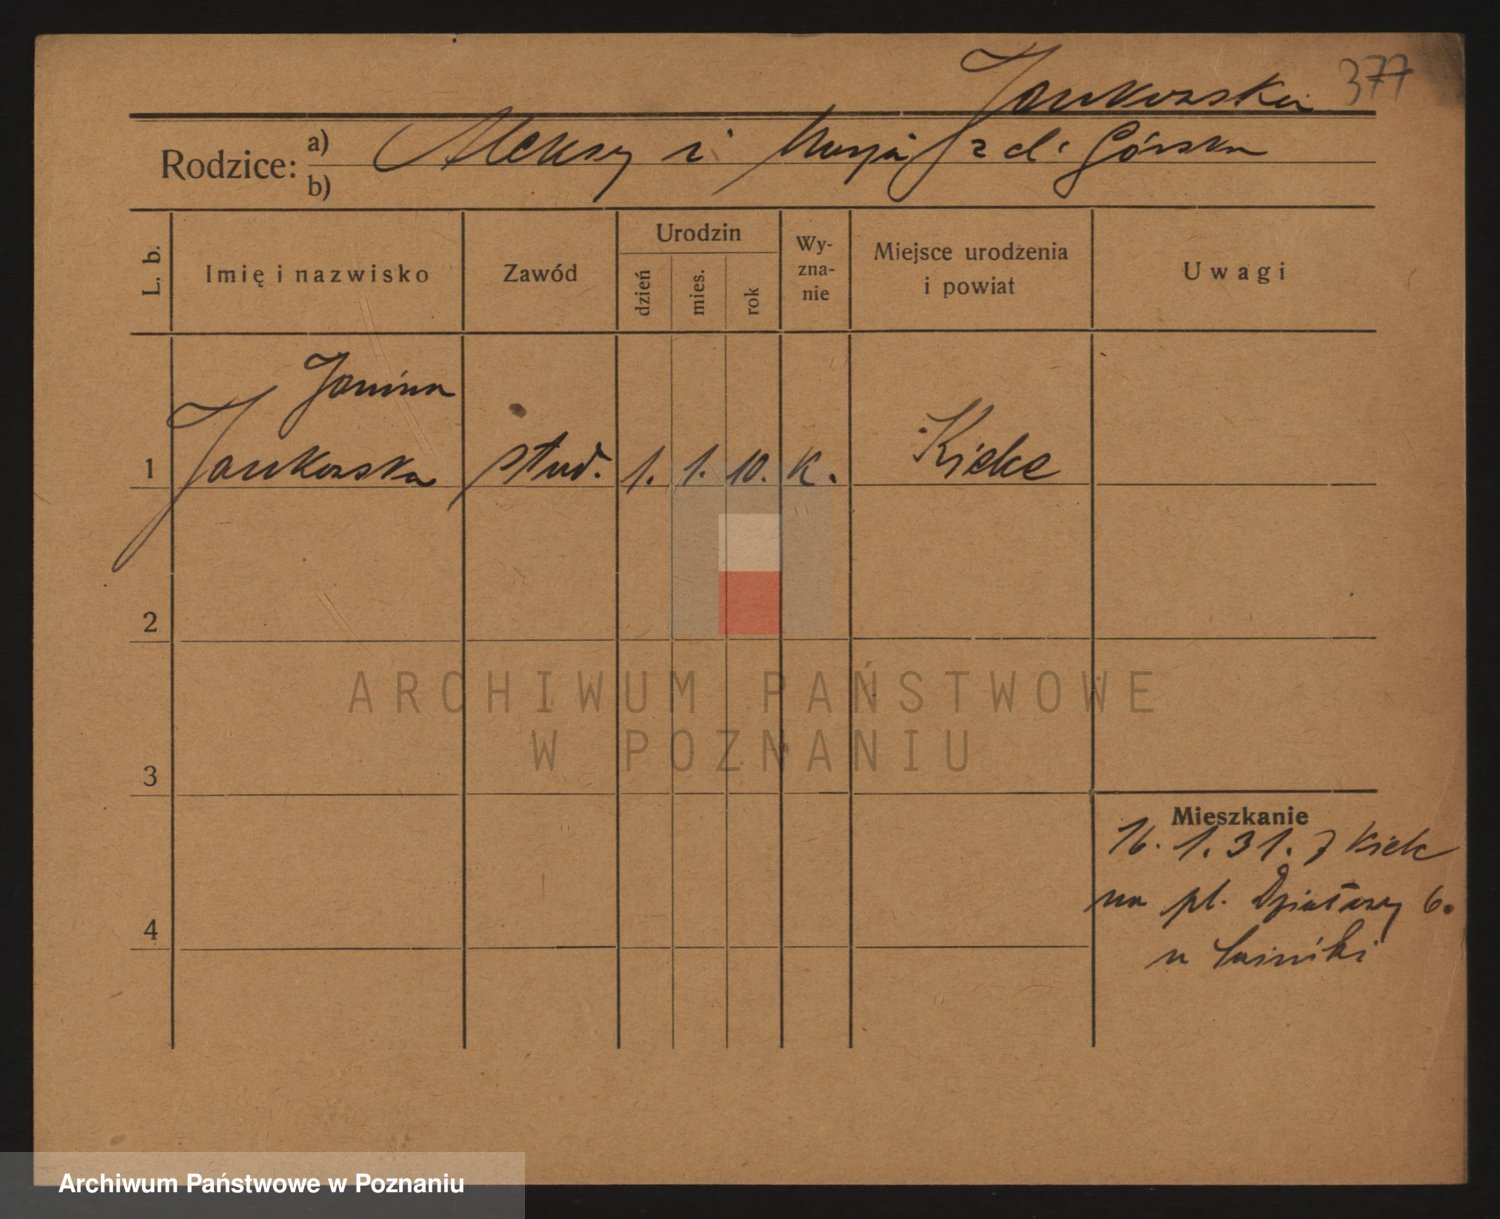 Jankowska 377
Rodzice: a) Aleksy i Marja z d. Górska
b)
L. b. Imię i nazwisko Zawód Urodzin dzień mies. rok Wyznanie Miejsce urodzenia i powiat Uwagi
Janina
1 Jankowska stud. 1. 1. 10. K. Kielce
2
ARCHIWUM PAŃSTWOWE
W POZNANIU
3
Mieszkanie
16. 1. 31. z Kielc
4 na pl. Działowy 6.
u
Archiwum Państwowe w Poznaniu